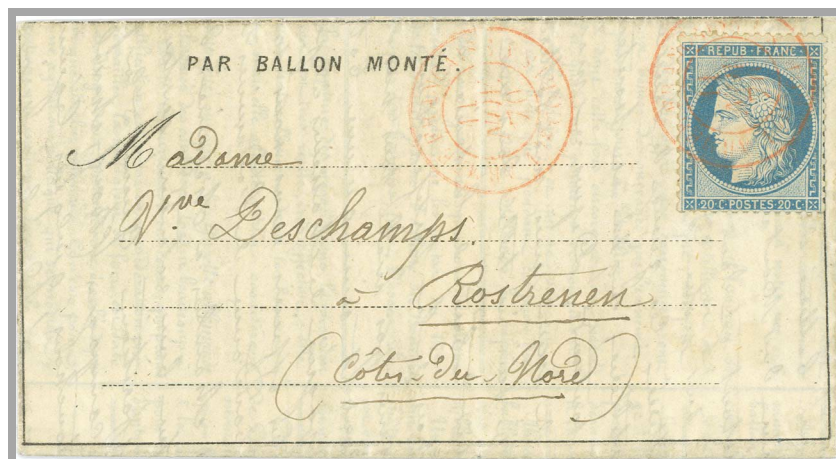 PAR BALLON MONTÉ.
REPUB·FRANC·
20·C·POSTES·20·C·
Madame
Vve Deschamps.
à Rostrenen
(Côtes-du-Nord)